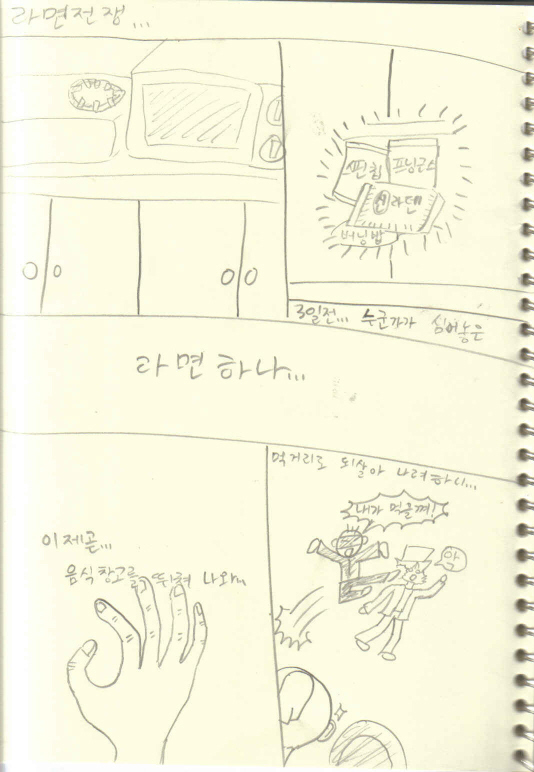 라면전쟁...
찐칩
프닝글스
신라덴
버닝밥
3일전... 누군가가 심어놓은
라면하나...
이제곧...
음식창고를 뚫혀 나와
먹거리로 되살아 나려하니...
내가 먹을꺼!
악